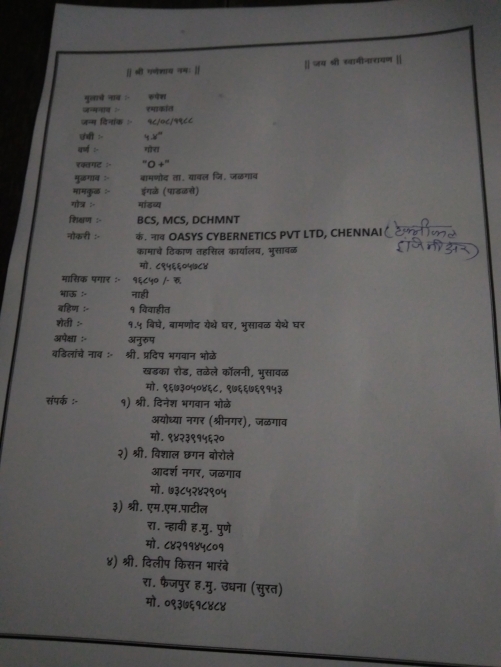 || श्री गणेशाय नमः ||
|| जय श्री स्वामीनारायण ||
मुलाचे नाव :- रुपेश
जन्मनाव :- रमाकांत
जन्म दिनांक :- १८/०८/१९८८
उंची :- ५.४"
वर्ण :- गोरा
रक्तगट :- "O +"
मुळगाव :- बामणोद ता. यावल जि. जळगाव
मामकुळ :- इंगळे (पाडळसे)
गोत्र :- मांडव्य
शिक्षण :- BCS, MCS, DCHMNT
नोकरी :- कं. नाव OASYS CYBERNETICS PVT LTD, CHENNAI
कामाचे ठिकाण तहसिल कार्यालय, भुसावळ
मो. ८९५६६०५७८४
मासिक पगार :- १६८५० /- रु.
भाऊ :- नाही
बहिण :- १ विवाहीत
शेती :- १.५ बिघे, बामणोद येथे घर, भुसावळ येथे घर
अपेक्षा :- अनुरुप
वडिलांचे नाव :- श्री. प्रदिप भगवान भोळे
खडका रोड, तळेले कॉलनी, भुसावळ
मो. ९६७३०५०४६८, ९७६६७६९१५३
संपर्क :- १) श्री. दिनेश भगवान भोळे
अयोध्या नगर (श्रीनगर), जळगाव
मो. ९४२३९१५६२०
२) श्री. विशाल छगन बोरोले
आदर्श नगर, जळगाव
मो. ७३८५२४२९०५
३) श्री. एम.एम.पाटील
रा. न्हावी ह.मु. पुणे
मो. ८४२११४५८०१
४) श्री. दिलीप किसन भारंबे
रा. फैजपुर ह.मु. उधना (सुरत)
मो. ०९३७६१८४८४